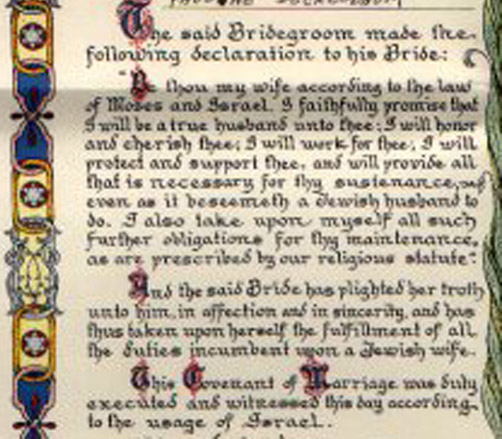 The said Bridegroom made the
following declaration to his Bride:
"Be thou my wife according to the law
of Moses and Israel. I faithfully promise that
I will be a true husband unto thee; I will honor
and cherish thee; I will work for thee; I will
protect and support thee, and will provide all
that is necessary for thy sustenance,
even as it beseemeth a Jewish husband to
do. I also take upon myself all such
further obligations for thy maintenance,
as are prescribed by our religious statute."
And the said Bride has plighted her troth
unto him, in affection and in sincerity, and has
thus taken upon herself the fulfillment of all
the duties incumbent upon a Jewish wife.
This Covenant of Marriage was duly
executed and witnessed this day according
to the usage of Israel.